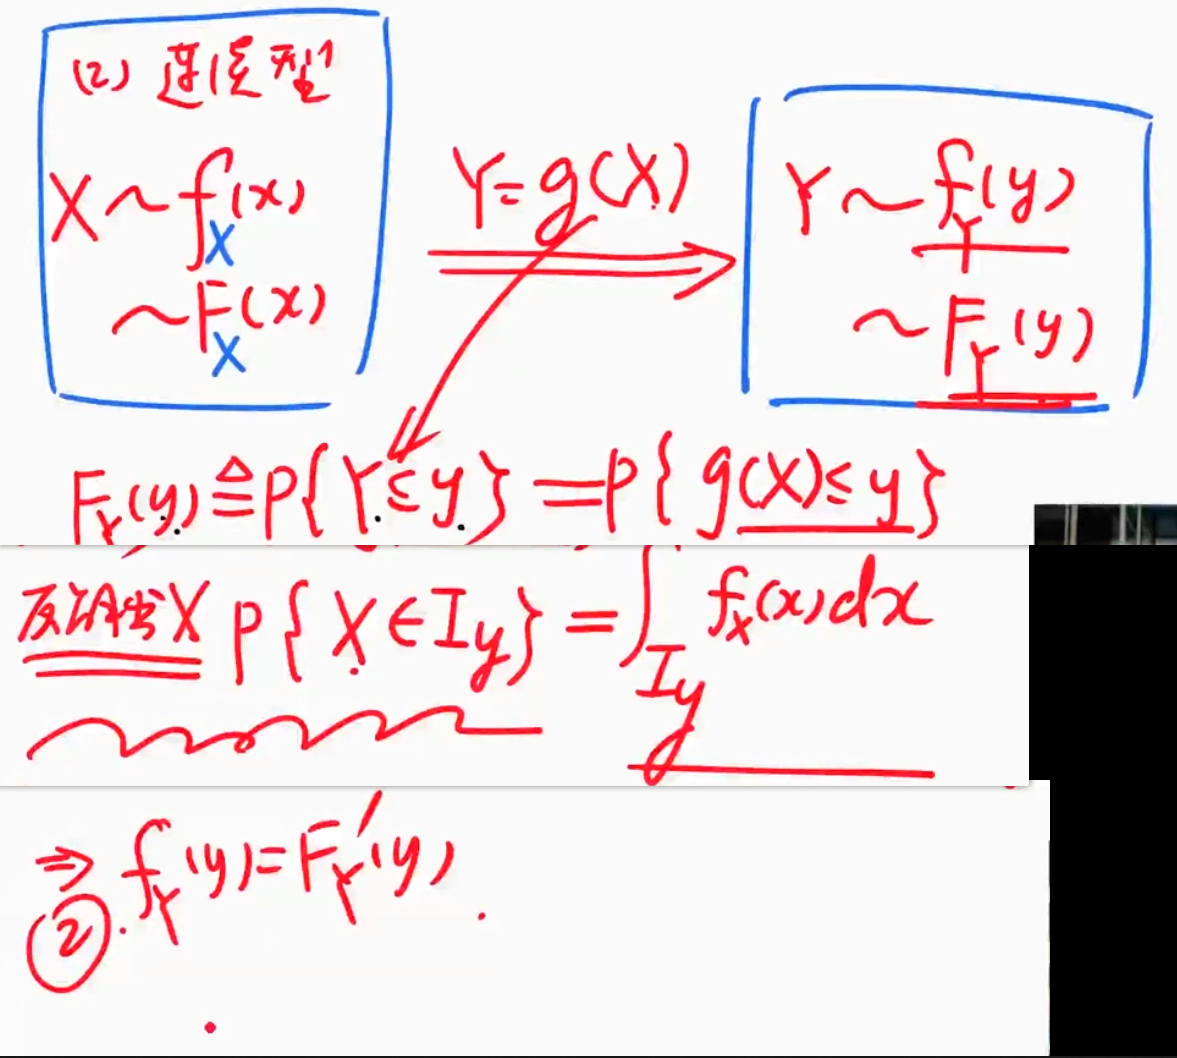 (2) 连续型
X~f_X(x)
~F_X(x)
Y=g(X)
Y~f_Y(y)
~F_Y(y)
F_Y(y)≜P{Y≤y}=P{g(X)≤y}
反解出X P{X∈I_y}=∫_{I_y} f_X(x)dx
⇒
②. f_Y(y)=F_Y'(y).